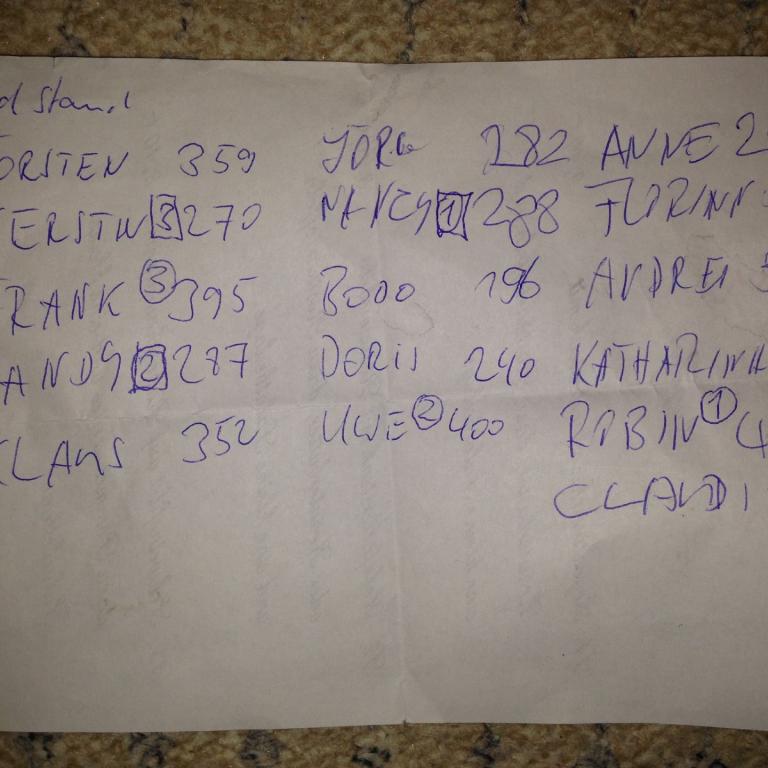 d Stand
ORSTEN 359 JÖRG 282 ANNE 2
ERSTIN 3 270 NANCY 1 288 FLORIAN
RANK 3 395 BODO 196 ANDREA
ANDY 2 287 DORIS 240 KATHARINA
LAUS 352 UWE 2 400 ROBIN 1 4
CLAUDI